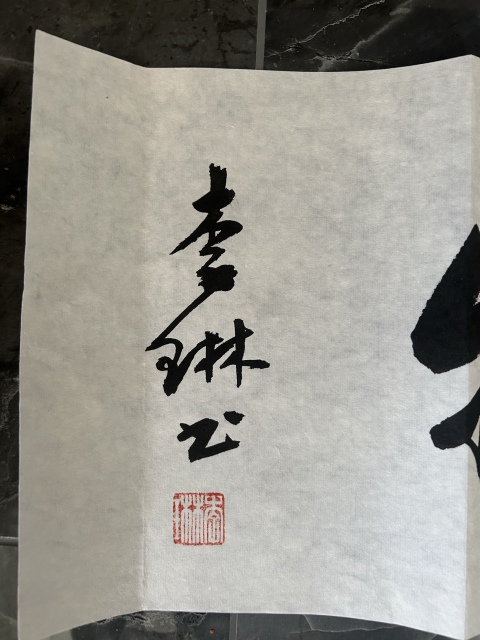 李
琳
书
李琳